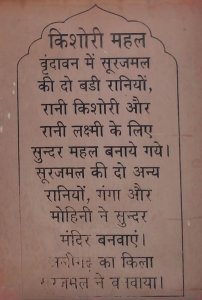 किशोरी महल
वृंदावन में सूरजमल
की दो बडी रानियों,
रानी किशोरी और
रानी लक्ष्मी के लिए
सुन्दर महल बनाये गये।
सूरजमल की दो अन्य
रानियों, गंगा और
मोहिनी ने सुन्दर
मंदिर बनवाएं।
का किला
सूरजमल ने बनवाया।